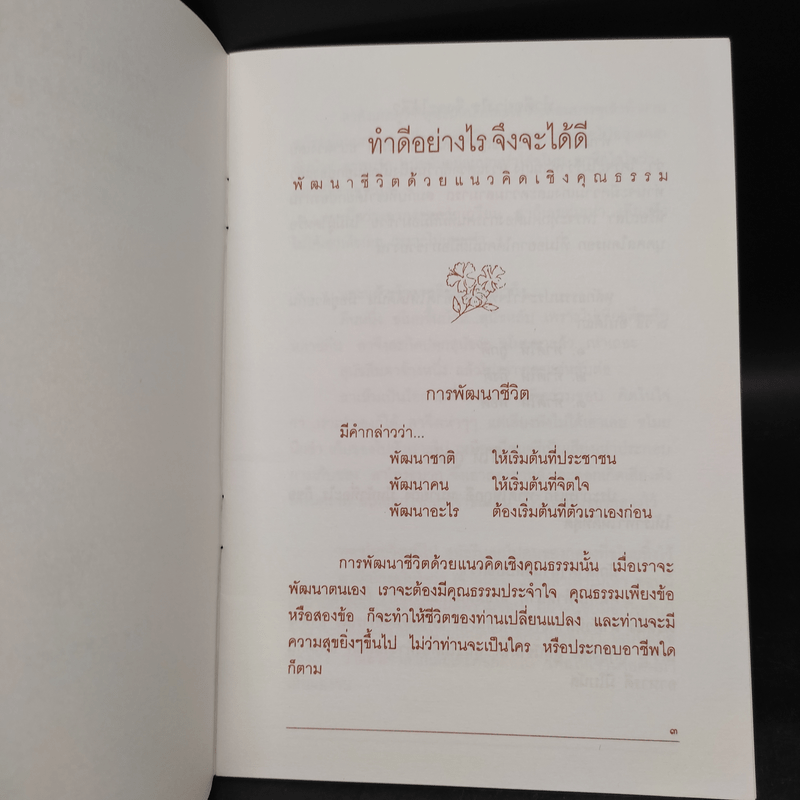 ทำดีอย่างไร จึงจะได้ดี
พัฒนาชีวิตด้วยแนวคิดเชิงคุณธรรม
การพัฒนาชีวิต
มีคำกล่าวว่า...
พัฒนาชาติ ให้เริ่มต้นที่ประชาชน
พัฒนาคน ให้เริ่มต้นที่จิตใจ
พัฒนาอะไร ต้องเริ่มต้นที่ตัวเราเองก่อน
การพัฒนาชีวิตด้วยแนวคิดเชิงคุณธรรมนั้น เมื่อเราจะ
พัฒนาตนเอง เราจะต้องมีคุณธรรมประจำใจ คุณธรรมเพียงข้อ
หรือสองข้อ ก็จะทำให้ชีวิตของท่านเปลี่ยนแปลง และท่านจะมี
ความสุขยิ่งๆขึ้นไป ไม่ว่าท่านจะเป็นใคร หรือประกอบอาชีพใด
ก็ตาม
๓